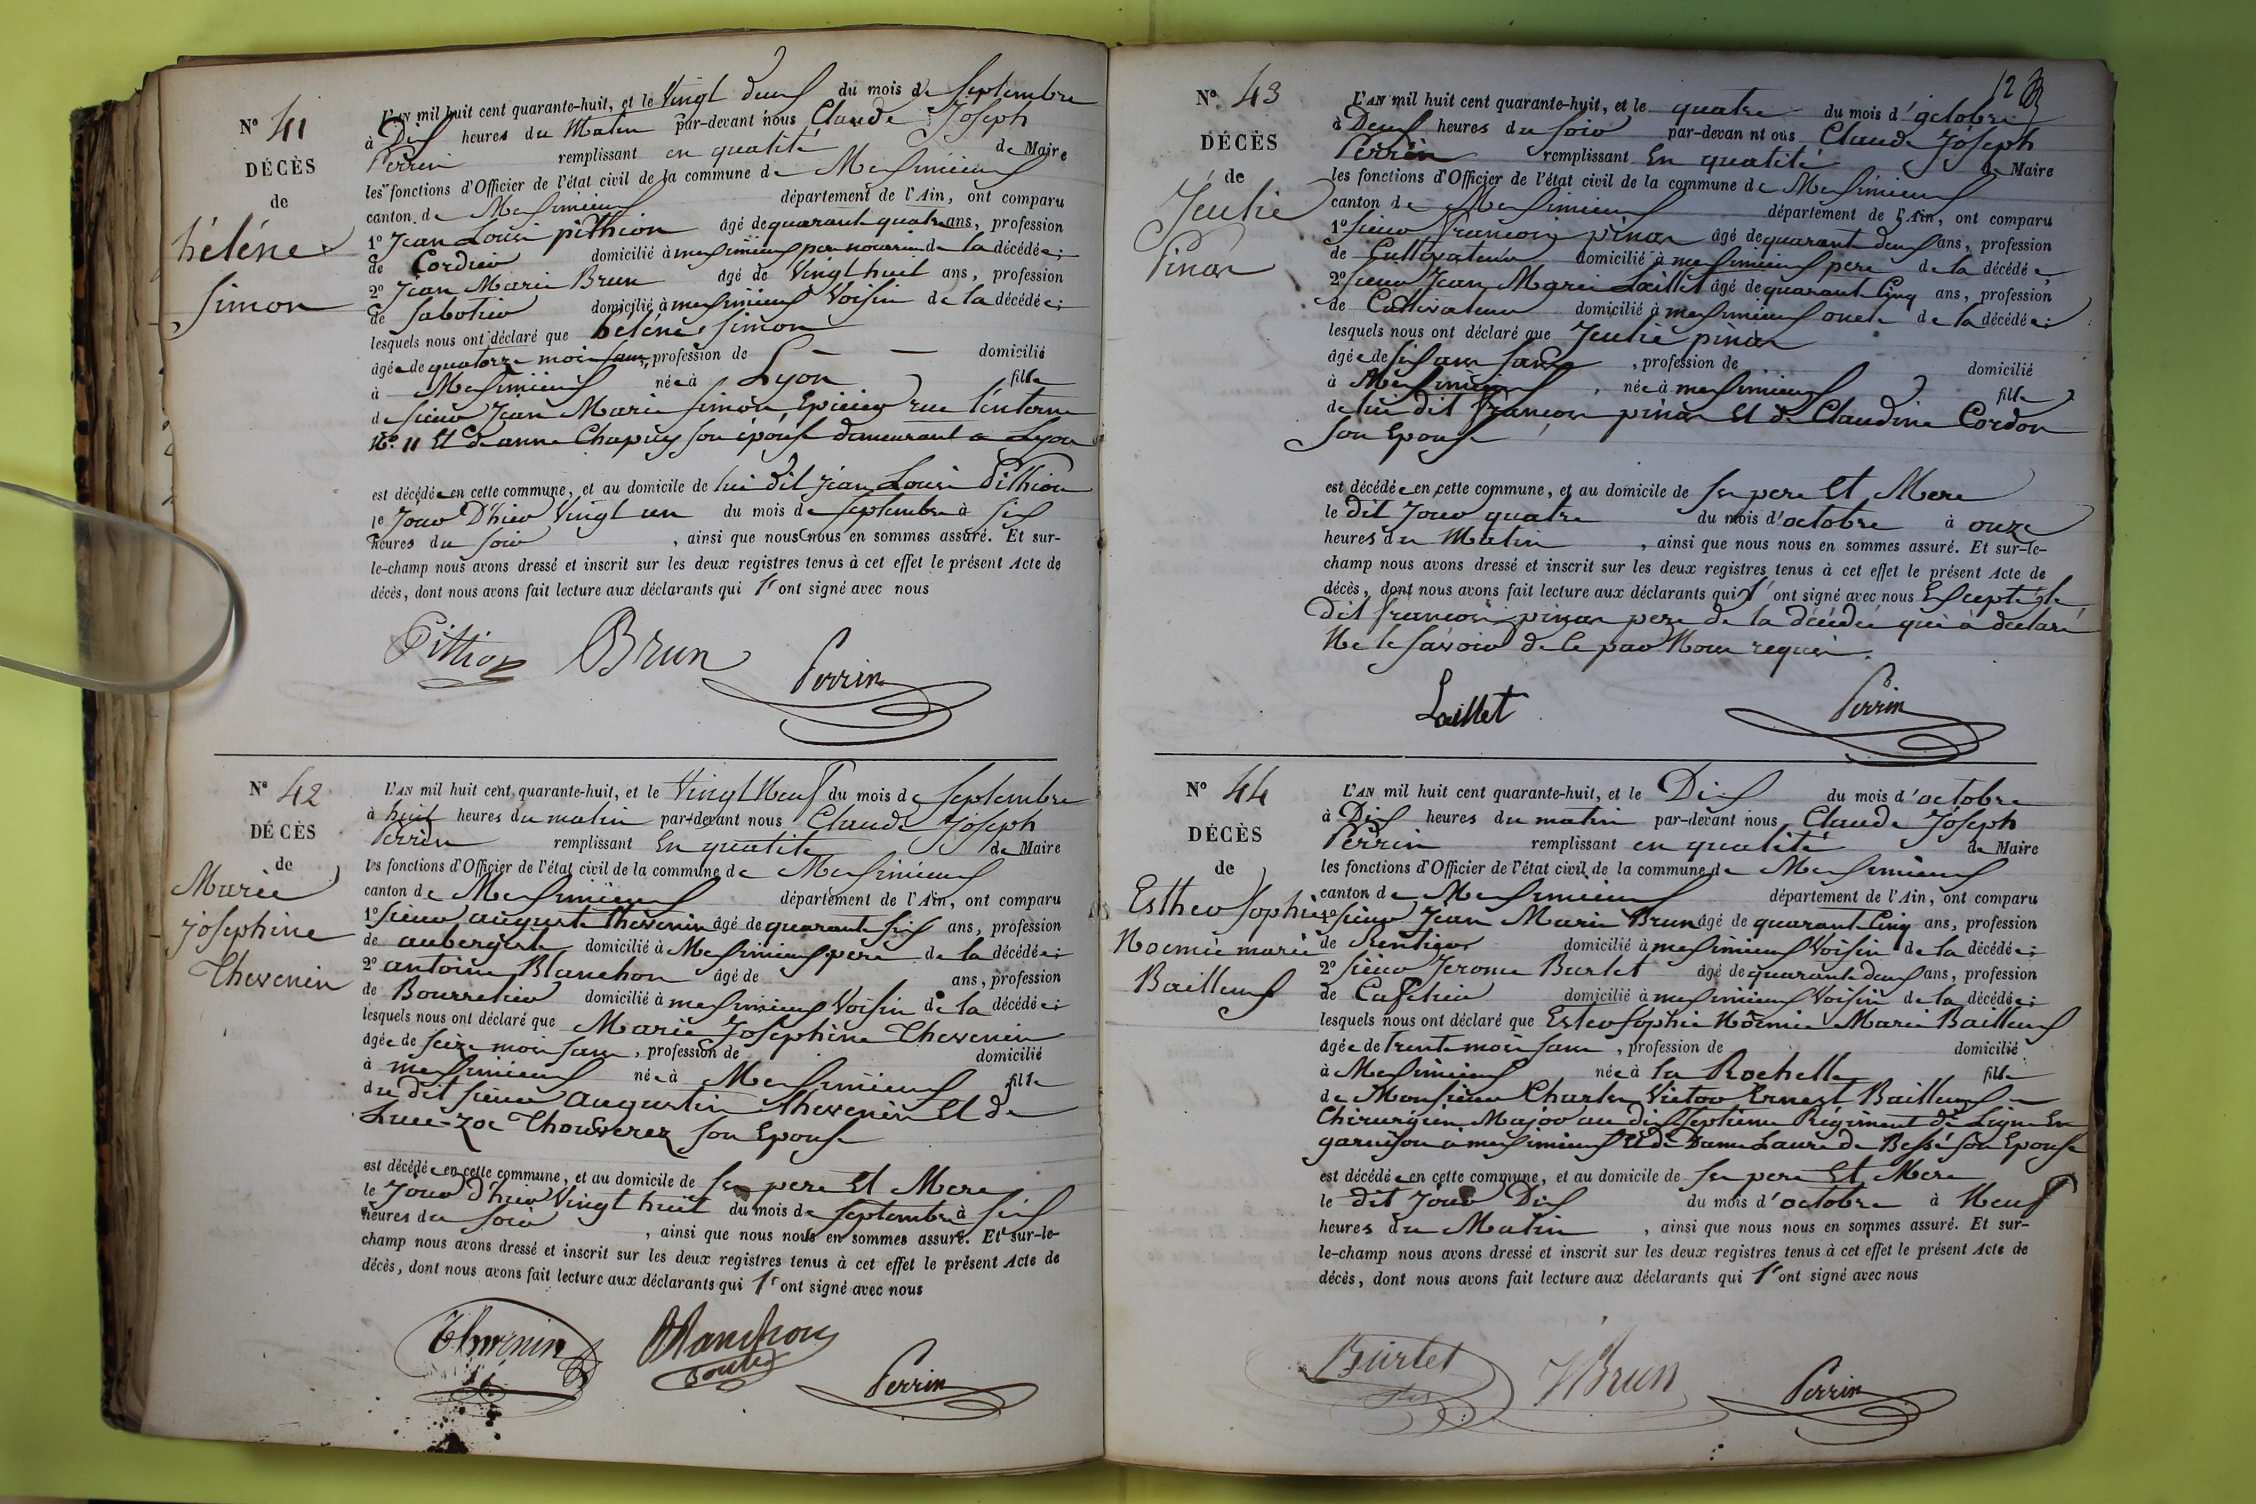 N° 41
DÉCÈS
de
héléne
Simon
L'AN mil huit cent quarante-huit, et le Vingt deux du mois de Septembre
à Dix heures du Matin par-devant nous Claude Joseph
Perrin remplissant en qualité de Maire
les fonctions d'Officier de l'état civil de la commune de Meximieux
canton de Meximieux département de l'Ain, ont comparu
1° Jean Louis pithion âgé de quarant quatre ans, profession
de Cordier domicilié à meximieux per nourri de la décédée;
2° Jean Marie Brun âgé de Vingt huit ans, profession
de Sabotier domicilié à meximieux Voisin de la décédée;
lesquels nous ont déclaré que héléne Simon
âgée de quatorze mois sans, profession de — — domicilié
à Meximieux née à Lyon fille
de Sieur Jean Marie Simon Epicier rue lenterne
N° 11 Et de anne Chapuy son épouse demeurant a Lyon
est décédée en cette commune, et au domicile de lui dit Jean Louis Pithion
le Jour D'hier Vingt un du mois de Septembre à Six
heures du Soir , ainsi que nous nous en sommes assuré. Et sur-
le-champ nous avons dressé et inscrit sur les deux registres tenus à cet effet le présent Acte de
décès, dont nous avons fait lecture aux déclarants qui l' ont signé avec nous
Pithion Brun Perrin
N° 42
DÉCÈS
de
Marie
josephine
Thevenin
L'AN mil huit cent quarante-huit, et le Vingt Neuf du mois de Septembre
à huit heures du matin par-devant nous Claude Joseph
Perrin remplissant En qualité de Maire
les fonctions d'Officier de l'état civil de la commune de Meximieux
canton de Meximieux département de l'Ain, ont comparu
1° Sieur auguste thevenin âgé de quarante Six ans, profession
de aubergiste domicilié à Meximieux pere de la décédée;
2° antoine Blanchon âgé de ans, profession
de Bourrelier domicilié à meximieux Voisin de la décédée;
lesquels nous ont déclaré que Marie Josephine Thevenin
âgée de Seize mois sans , profession de domicilié
à meximieux née à Meximieux fille
du dit Sieur augustin thevenin Et de
Luce-zoe Thouverez son Epouse
est décédée en cette commune, et au domicile de Ses pere Et Mere
le Jour d'hier Vingt huit du mois de Septembre à Six
heures du Soir , ainsi que nous nous en sommes assuré. Et sur-le-
champ nous avons dressé et inscrit sur les deux registres tenus à cet effet le présent Acte de
décès, dont nous avons fait lecture aux déclarants qui l' ont signé avec nous
Thevenin Blanchon Perrin
12
N° 43
DÉCÈS
de
Jeulie
Pinar
L'AN mil huit cent quarante-huit, et le quatre du mois d'octobre
à Deux heures du Soir par-devan nt ous Claude Joseph
Perrin remplissant En qualité de Maire
les fonctions d'Officier de l'état civil de la commune de Meximieux
canton de Meximieux département de l'Ain, ont comparu
1° Sieur francois pinar âgé de quarant deux ans, profession
de Cultivateur domicilié à meximieux pere de la décédée
2° Sieur Jean Marie Laillet âgé de quarant Cinq ans, profession
de Cultivateur domicilié à meximieux oncle de la décédée;
lesquels nous ont déclaré que Jeulie pinar
âgée de Six ans sans , profession de domicilié
à Meximieux , née à meximieux fille
de lui dit francois pinar Et de Claudine Cordon
son Epouse
est décédée en cette commune, et au domicile de Ses pere Et Mere
le dit Jour quatre du mois d'octobre à onze
heures du Matin , ainsi que nous nous en sommes assuré. Et sur-le-
champ nous avons dressé et inscrit sur les deux registres tenus à cet effet le présent Acte de
décès, dont nous avons fait lecture aux déclarants qui l' ont signé avec nous Excepté le
Dit francois pinar pere de la décédé qui à declaré
Ne le Savoir de le par Nous requis.
Laillet Perrin
N° 44
DÉCÈS
de
Esther Sophie
Noemie marie
Bailleux
L'AN mil huit cent quarante-huit, et le Dix du mois d'octobre
à Dix heures du matin par-devant nous Claude Joseph
Perrin remplissant en qualité de Maire
les fonctions d'Officier de l'état civil de la commune de Meximieux
canton de Meximieux département de l'Ain, ont comparu
1° Sieur Jean Marie Brun âgé de quarant Cinq ans, profession
de Rentier domicilié à meximieux Voisin de la décédée;
2° Sieur Jerome Burlet âgé de quarante deux ans, profession
de Caffetier domicilié à meximieux Voisin de la décédée;
lesquels nous ont déclaré que Ester Sophie Noemie Marie Bailleux
âgée de trente mois sans , profession de domicilié
à Meximieux née à La Rochelle fille
de Monsieur Charles Victor Ernest Bailleux
Chirurgien Major au dix Septieme Régiment de Ligne En
garnison à meximieux Et de Dame Laure de Bessé son Epouse
est décédée en cette commune, et au domicile de Ses pere Et Mere
le dit Jour Dix du mois d'octobre à Neuf
heures du Matin , ainsi que nous nous en sommes assuré. Et sur-
le-champ nous avons dressé et inscrit sur les deux registres tenus à cet effet le présent Acte de
décès, dont nous avons fait lecture aux déclarants qui l' ont signé avec nous
Burlet JBrun Perrin